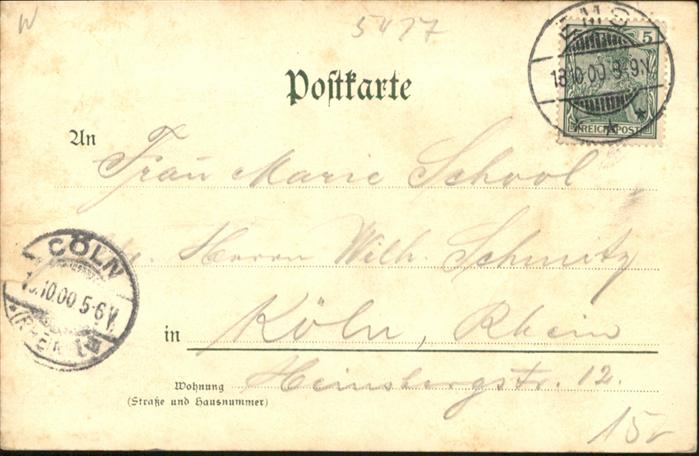 5477
EMS
18.10.00 8-9N
5
REICHSPOST
Postkarte
An
Frau Marie School
Herrn Wilh. Schmitz
CÖLN
10.00 5-6V.
(RHEIN)
in Köln, Rhein
Wohnung
(Straße und Hausnummer)
Heinsbergstr. 12.
15